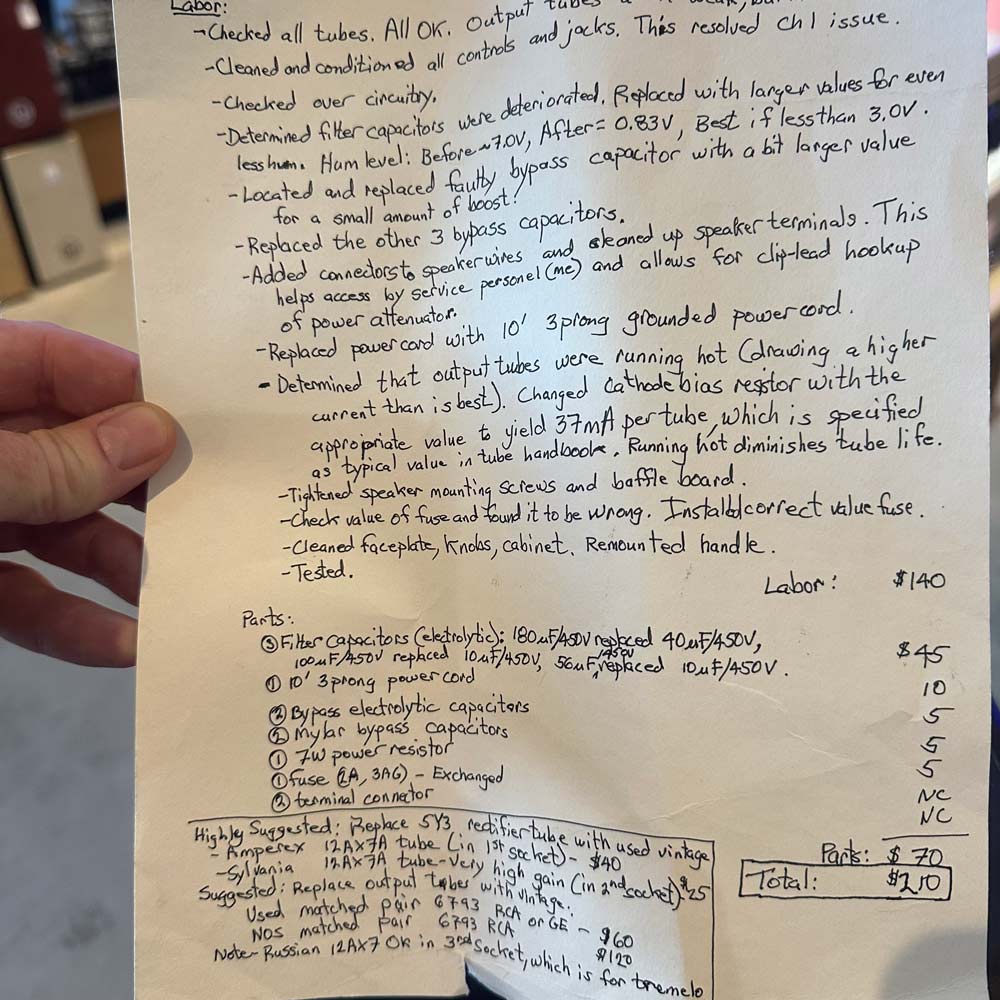 Labor:
-Checked all tubes. All OK. Output tubes
-Cleaned and conditioned all controls and jacks. This resolved ch 1 issue.
-Checked over circuitry.
-Determined filter capacitors were deteriorated. Replaced with larger values for even
less hum. Hum level: Before ~7.0V, After = 0.83V, Best if less than 3.0V.
-Located and replaced faulty bypass capacitor with a bit larger value
for a small amount of boost!
-Replaced the other 3 bypass capacitors.
-Added connectors to speaker wires and cleaned up speaker terminals. This
helps access by service personel (me) and allows for clip-lead hookup
of power attenuator.
-Replaced power cord with 10' 3 prong grounded power cord.
-Determined that output tubes were running hot (drawing a higher
current than is best). Changed cathode bias resistor with the
appropriate value to yield 37mA per tube, which is specified
as typical value in tube handbook. Running hot diminishes tube life.
-Tightened speaker mounting screws and baffle board.
-Check value of fuse and found it to be wrong. Installd correct value fuse.
-Cleaned faceplate, knobs, cabinet. Remounted handle.
-Tested.
Labor: $140
Parts:
③ Filter capacitors (electrolytic): 180uF/450V replaced 40uF/450V,
100uF/450V replaced 10uF/450V, 56uF/450V replaced 10uF/450V. $45
① 10' 3 prong power cord 10
② Bypass electrolytic capacitors 5
② Mylar bypass capacitors 5
① 7W power resistor 5
① fuse (2A, 3AG) - Exchanged NC
② terminal connector NC
Parts: $70
Total: $210
Highly Suggested: Replace 5Y3 rectifier tube with used vintage
- Amperex 12AX7A tube (in 1st socket) - $40
-Sylvania 12AX7A tube - Very high gain (in 2nd socket) - $25
Suggested: Replace output tubes with vintage.
Used matched pair 6V93 RCA or GE - $60
NOS matched pair 6V93 RCA $120
Note- Russian 12AX7 OK in 3rd socket, which is for tremelo